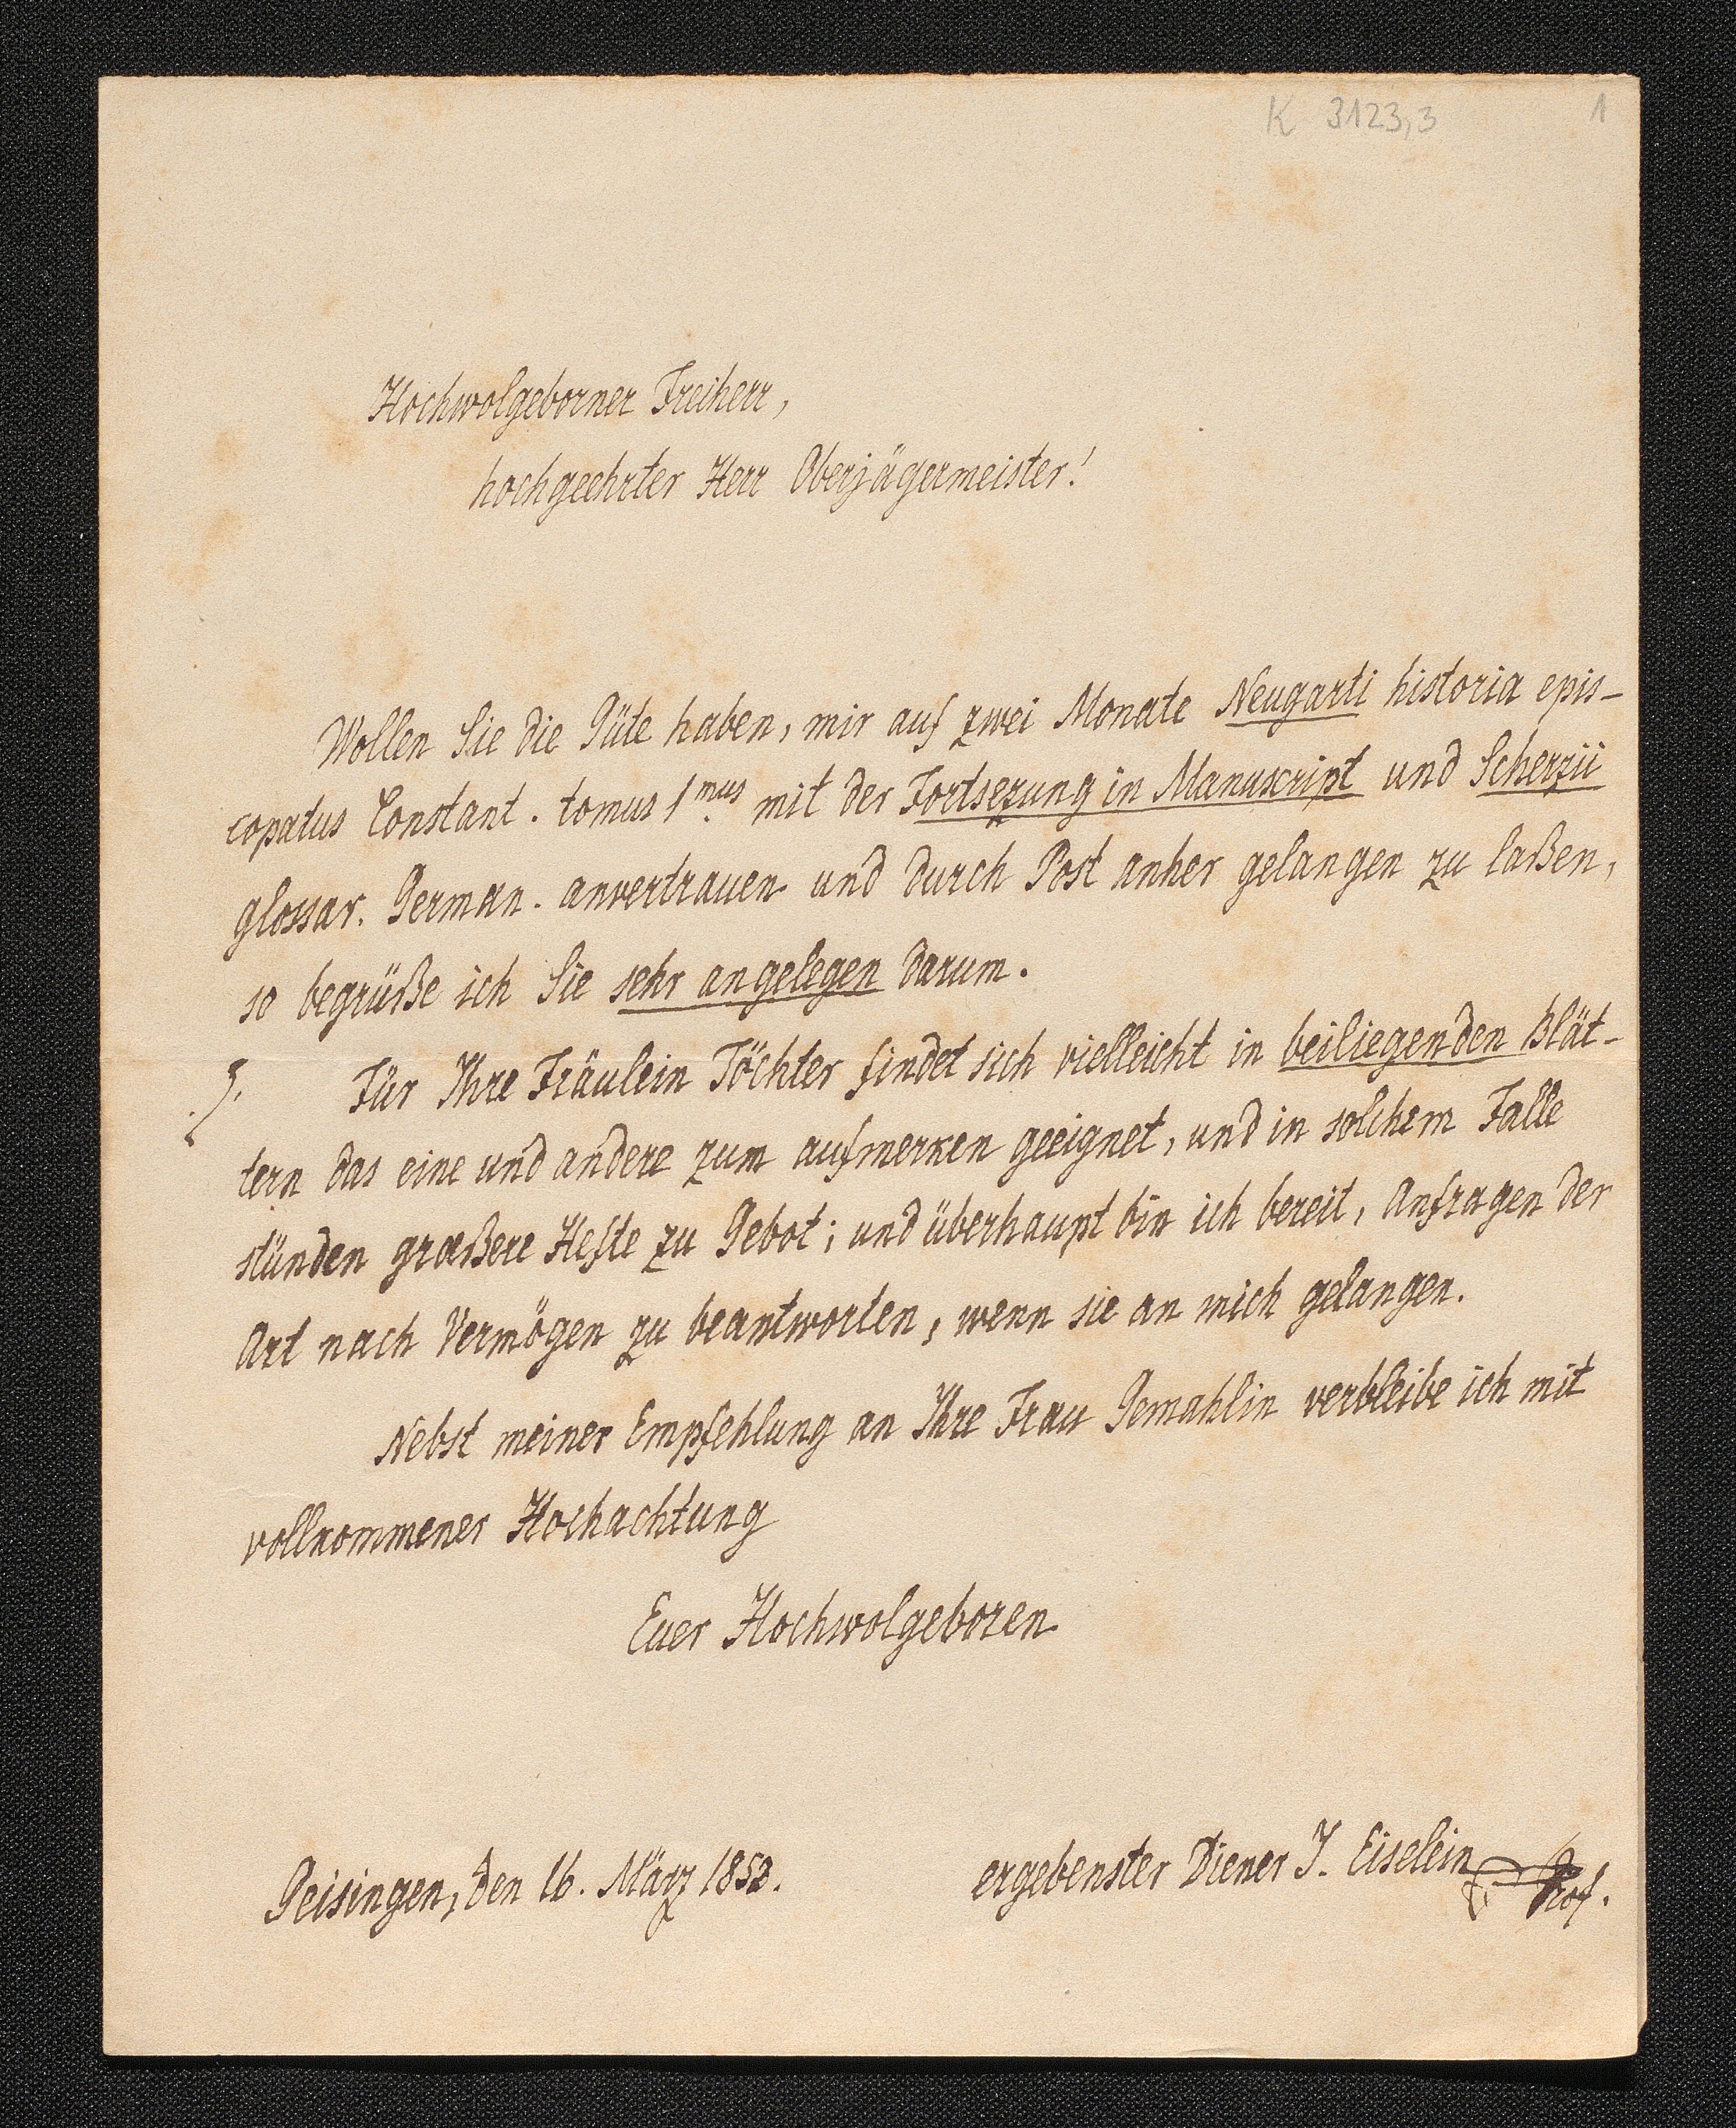 K 3123,3 1
Hochwolgeborner Freiherr,
hochgeehrter Herr Oberjägermeister!
Wollen Sie die Güte haben, mir auf zwei Monate Neugarti historia epis-
copatus Constant. tomus 1mus mit der Fortsezung in Manuscript und Scherzii
glossar. German. anvertrauen und durch Post anher gelangen zu laßen,
so begrüße ich Sie sehr angelegen darum.
Für Ihre Fräulein Töchter findet sich vielleicht in beiliegenden Blät-
tern das eine und andere zum aufmerken geeignet, und in solchem Falle
stünden grœßere Hefte zu Gebot; und überhaupt bin ich bereit, Anfragen der
Art nach Vermögen zu beantworten, wenn sie an mich gelangen.
Nebst meiner Empfehlung an Ihre Frau Gemahlin verbleibe ich mit
vollkommener Hochachtung
Euer Hochwolgeboren
Geisingen, den 16. März 1852. ergebenster Diener J. Eiselein Prof.